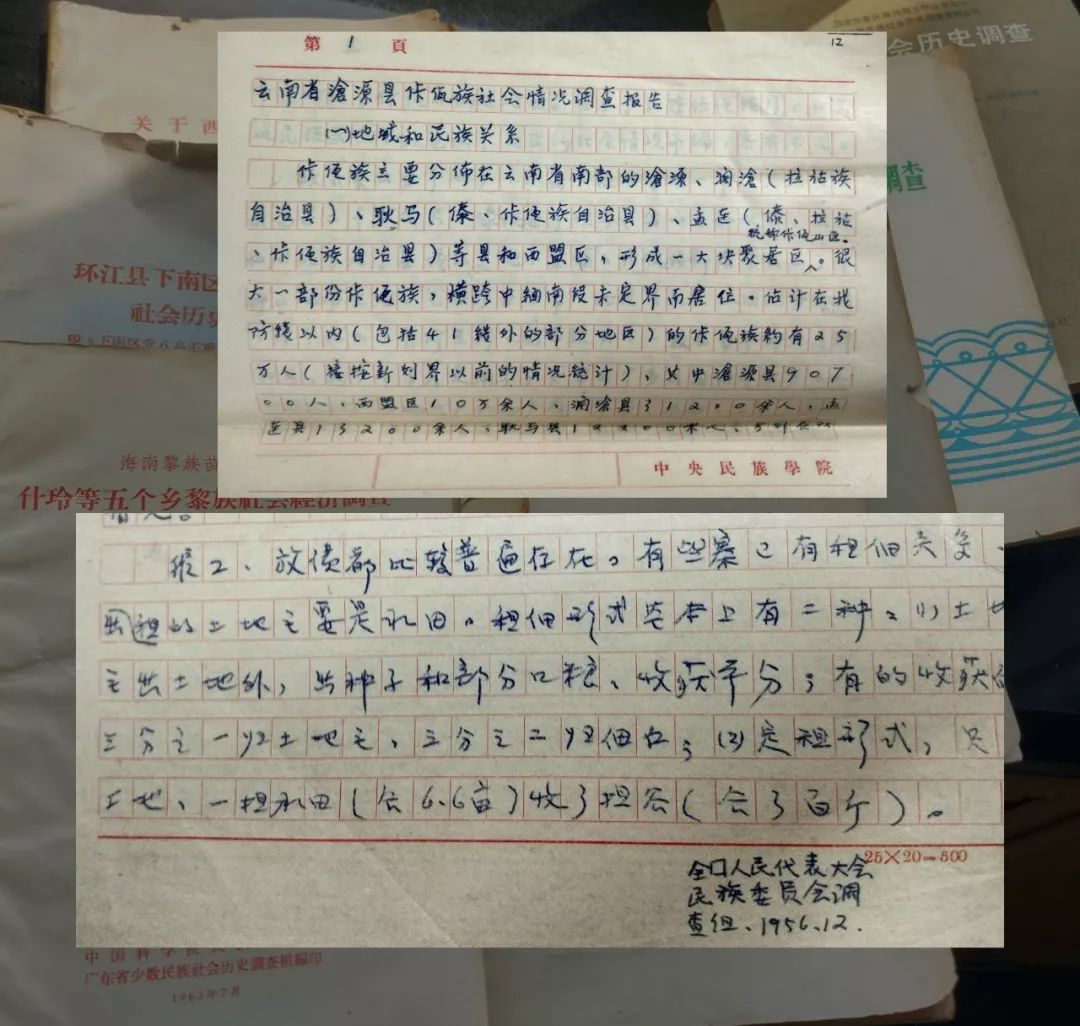 第 1 頁
12
云南省滄源县佧佤族社会情况调查报告
(一)地域和民族关系
佧佤族主要分佈在云南省南部的滄源、澜滄(拉祜族
自治县)、耿马(傣、佧佤族自治县)、孟连(傣、拉祜
统称佧佤山区。
、佧佤族自治县)等县和西盟区,形成一大块聚居区。很
大一部份佧佤族,横跨中缅南段未定界而居住。估计在我
防线以内(包括41线外的部分地区)的佧佤族约有25
万人(接挖新划界以前的情况统计),其中滄源县907
00人、西盟区10万余人、澜滄县31200余人、孟
连县13200余人、耿马县
中央民族學院
会历史调查
调查
关于西
环江县下南区
社会历
海南黎族苗
什玲等五个乡黎族社会經济調查
雇工、放债都比较普遍存在。有些寨已有租佃关系、
出租的土地主要是水田。租佃形式基本上有二种:(1)土地
主出土地外,出种子和部分口粮、收获平分;有的收获
三分之一归土地主、三分之二归佃户;(2)定租形式,只
土地、一担水田(合6.6亩)收3担谷(合3百斤)。
25×20=500
全囗人民代表大会
民族委员会调
查组、1956.12.
中国科学院
广东省少数民族社会历史調查組編印
1963年7月